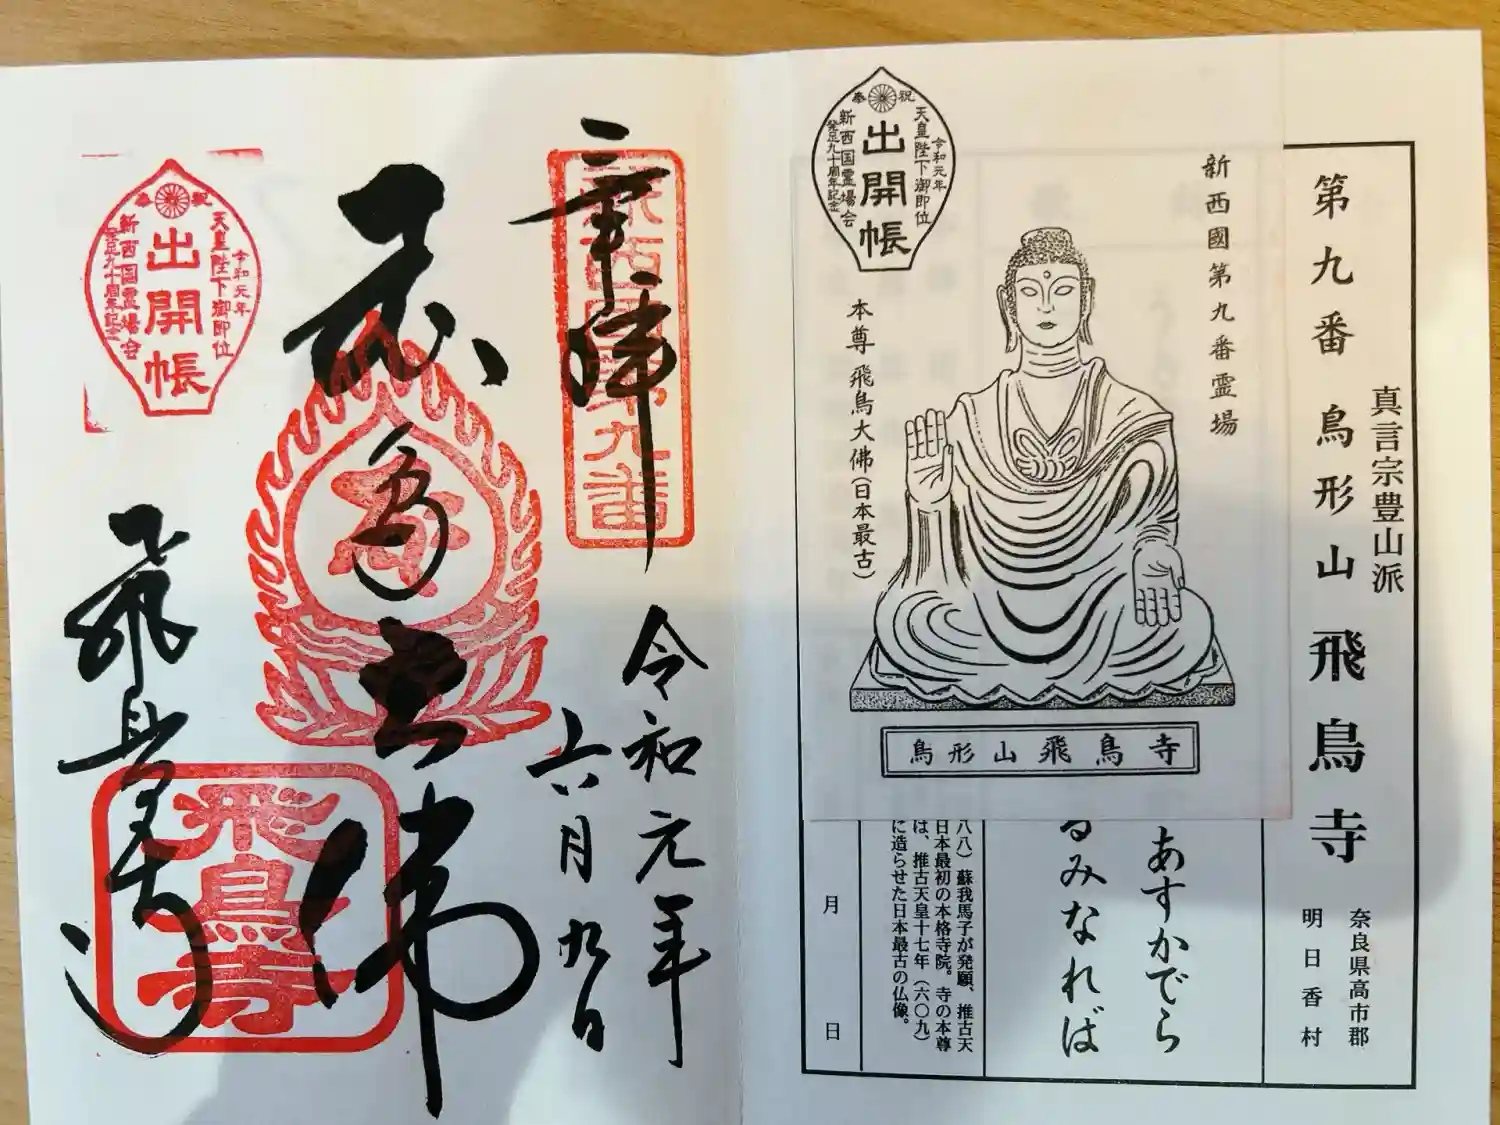 第九番 鳥形山 飛鳥寺
真言宗豊山派
奈良県高市郡
明日香村
あすかでら
るみなれば
八八）蘇我馬子が発願、推古天
日本最初の本格寺院。寺の本尊
は、推古天皇十七年（六〇九）
に造らせた日本最古の仏像。
月 日
新西國第九番霊場
奉祝
令和元年
天皇陛下御即位
出開帳
新西国霊場会
発足九十周年記念
本尊飛鳥大佛（日本最古）
鳥形山飛鳥寺
奉拝
新西国第九番
令和元年
六月九日
大佛
飛鳥寺
飛鳥寺
奉祝
令和元年
天皇陛下御即位
出開帳
新西国霊場会
発足九十周年記念